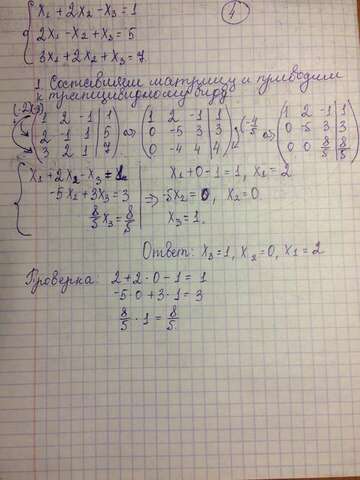 x₁ + 2x₂ - x₃ = 1
2x₁ - x₂ + x₃ = 5
3x₁ + 2x₂ + x₃ = 7
4
1. Составляем матрицу и приводим
к трапециевидному виду
(-2)(-3)
(1 2 -1 | 1
2 -1 1 | 5
3 2 1 | 7) ⇒ (1 2 -1 | 1
0 -5 3 | 3
0 -4 4 | 4) (-4/5) ⇒ (1 2 -1 | 1
0 -5 3 | 3
0 0 8/5 | 8/5)
x₁ + 2x₂ - x₃ = 1
-5x₂ + 3x₃ = 3
8/5 x₃ = 8/5
⇒
x₁ + 0 - 1 = 1, x₁ = 2
-5x₂ = 0, x₂ = 0
x₃ = 1.
Ответ: x₃ = 1, x₂ = 0, x₁ = 2
Проверка: 2 + 2·0 - 1 = 1
-5·0 + 3·1 = 3
8/5 · 1 = 8/5